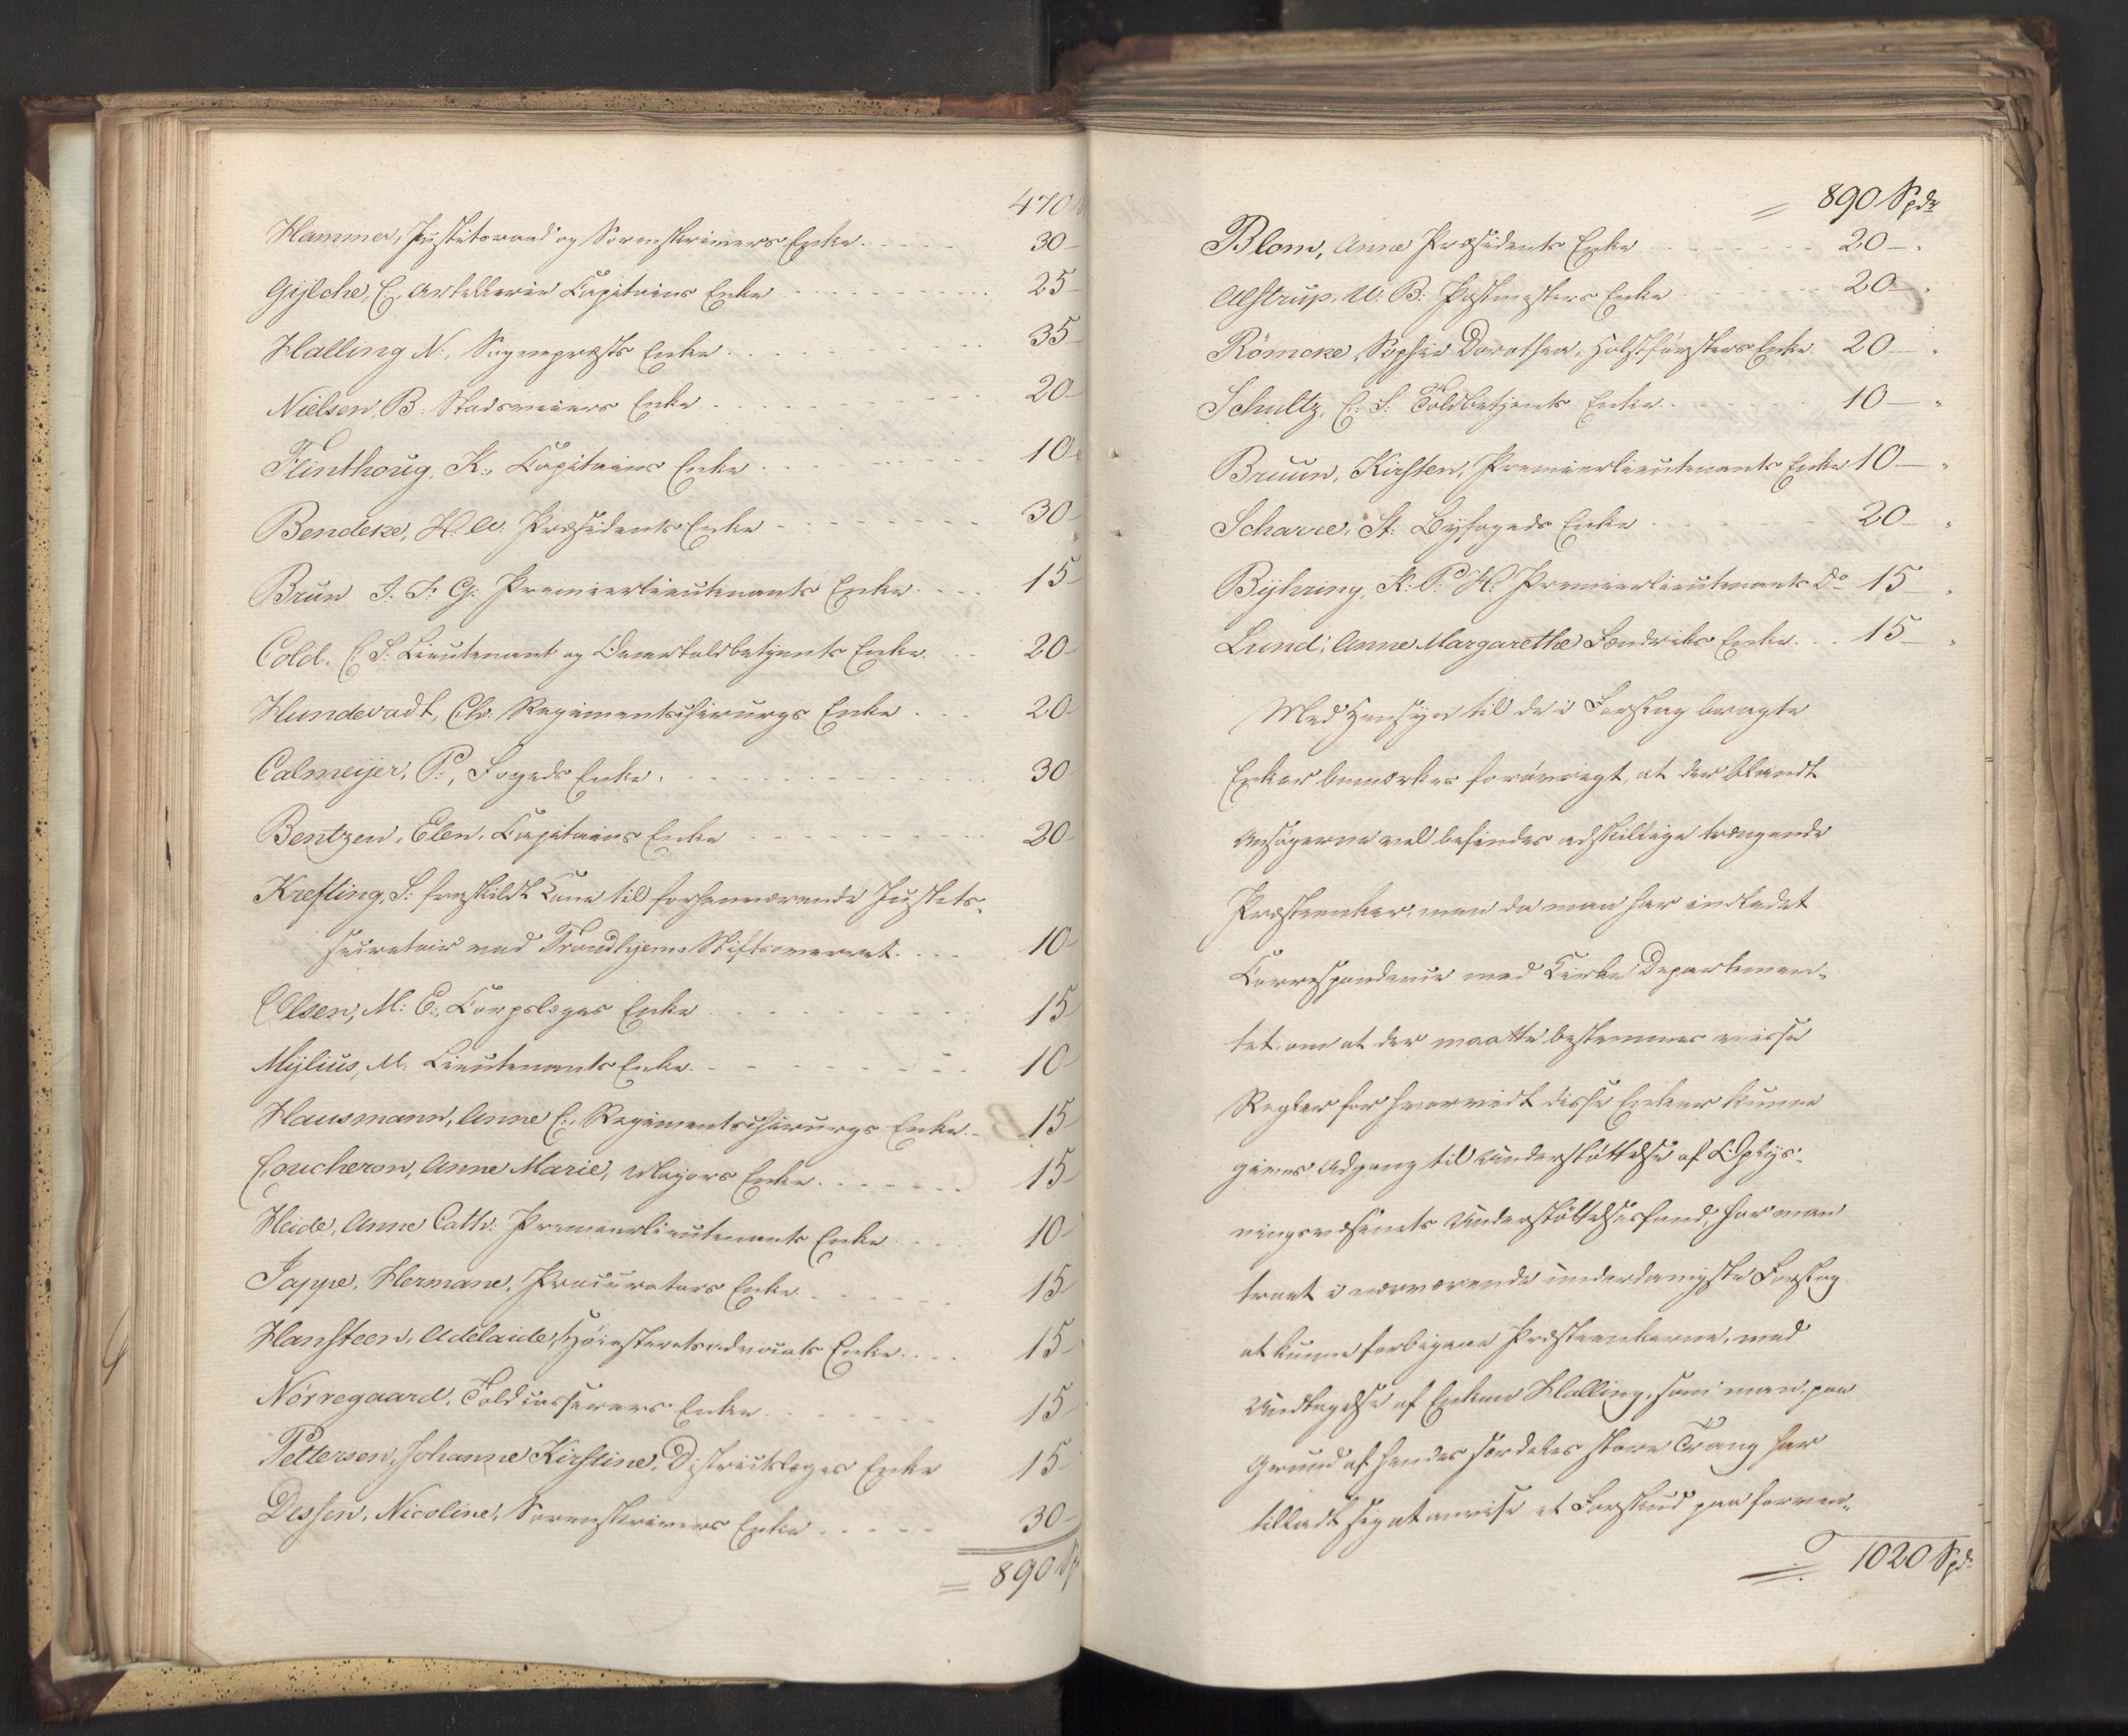 470
Hammer, Justitsraad og Sorenskrivers Enke. 30-
Gÿlche, C:, Artellerie Capitains Enke 25-
Halling N:, Sogneprests Enke. 35-
Nielsen, B: Stadsmeiers Enke 20-
Flinthoug, K:, Capitains Enke 10-
Bendeke, H. A. Præsidents Enke 30-
Brun J. F. G: Premierlieutenants Enke. 15-
Cold. C. S: Lieutenant og Overtoldbetjents Enke. 20-
Hundevadt, Chr. Regimentschirurgs Enke 20-
Calmeÿer, P:, Fogeds Enke. 30
Bentzen, Elen, Capitains Enke 20-
Krefting, S: fraskildt Kone til forhenværende Justits-
secretair ved Trondhjems Stiftsoverret. 10-
Olsen, M: E:, Corpslæges Enke 15-
Mÿlius, M. Lieutenants Enke. 10-
Hausmann, Anne C:, Regimentschirurgs Enke. 15-
Coucheron, Anne Marie, Majors Enke. 15-
Heide, Anne Cath: Premierlieutenants Enke 10-
Jappe, Hermane, Procurators Enke 15-
Hansteen, Adelaide, Höiesteretsadvocats Enke. 15-
Nörregaard, Toldcasserers Enke 15-
Pettersen, Johanne Kirstine, Districtslæges Enke 15-
Dessen, Nicoline, Sorenskrivers Enke 30-
= 890 Sp
= 890 Spdr
Blom, Anne Præsidents Enke 20-
Alstrup, U. B: Postmesters Enke 20-
Römcke, Sophie Dorothea, Holtzförsters Enke 20-
Schultz, C: S: Toldbetjents Enke. 10-
Bruun, Kirsten, Premierlieutenants Enke 10-
Scharre, St: Bÿfogeds Enke 20-
Bÿhring, K: P: H: Premierlieutenants Do 15-
Lund, Anne Margarethe Fændriks Enke. 15-
Med Hensÿn til de i Forslag bragte
Enker bemærkes forövrigt, at der blandt
Ansögerne vel befindes adskillige trængende
Præsteenker, men da man har indledet
Correspondence med Kirke Departemen-
tet om at der maatte bestemmes visse
Regler for hvorvidt disse Enker kunne
gives Adgang til Understöttelse af Oplÿs-
ningsvæsenets Understöttelsesfond, har man
troet i nærværende underdanigste Forslag
at kunne forbigaae Præsteenkerne, med
Undtagelse af Enken Halling, som man, paa
Grund af hendes særdeles store Trang har
tilladt sig at anvise et Forskud paa forven-
= 1020 Spd.